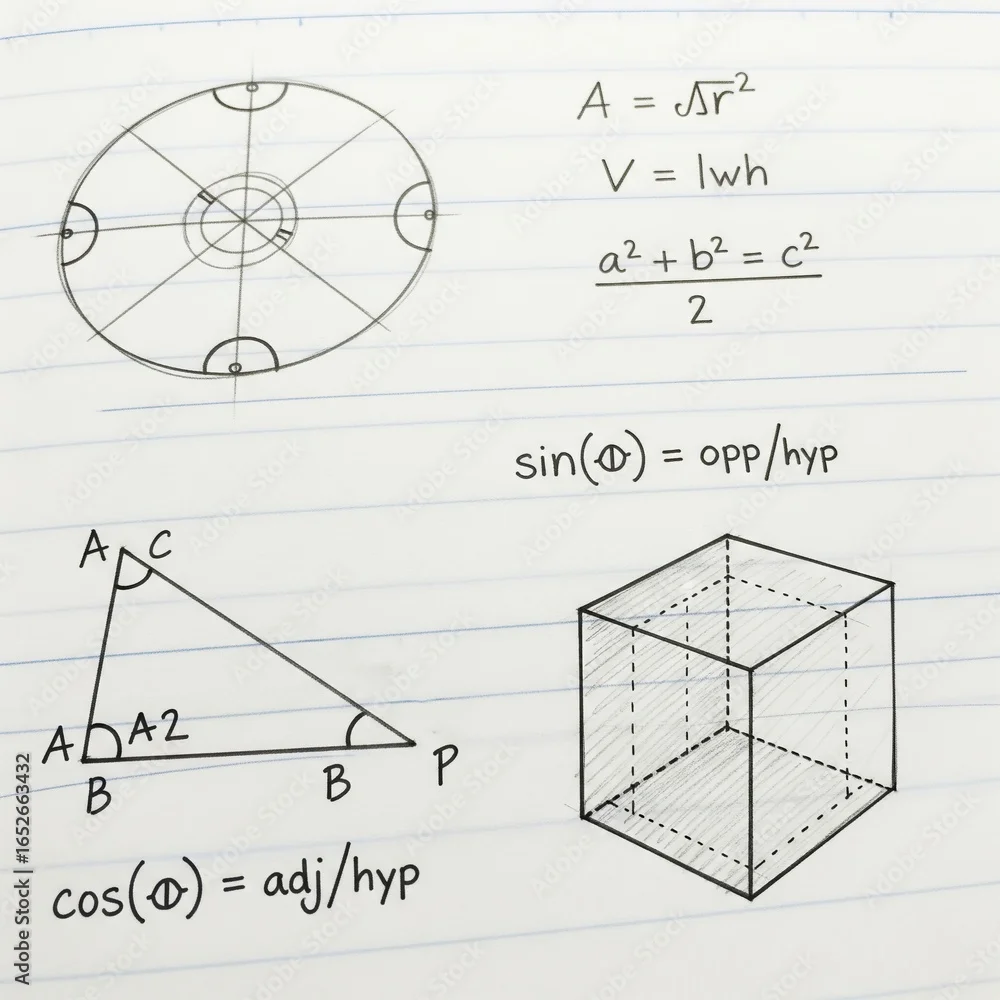 A = √r²
V = lwh
a² + b² = c²
2
sin(Φ) = opp/hyp
A C
A A2
B B P
cos(Φ) = adj/hyp
Adobe Stock | #1652663432